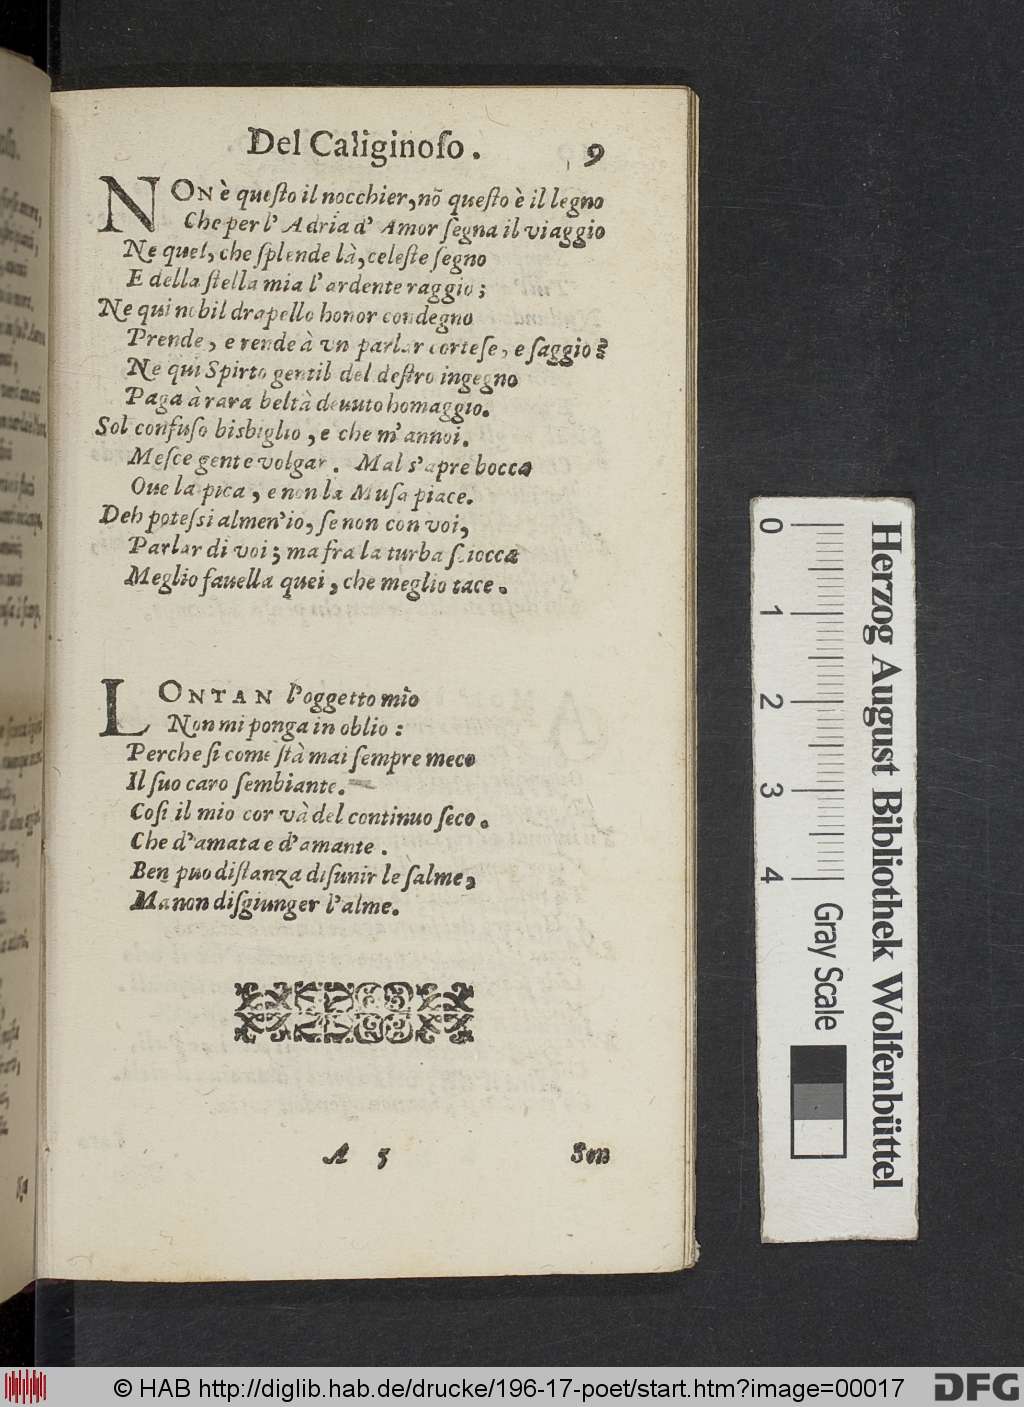 Del Caliginoſo. 9
NON è queſto il nocchier, nõ queſto è il legno
Che per l' Adria d' Amor ſegna il viaggio
Ne quel, che ſplende là, celeſte ſegno
E della ſtella mia l' ardente raggio;
Ne qui nobil drapello honor condegno
Prende, e rende à vn parlar corteſe, e ſaggio
Ne qui Spirto gentil del deſtro ingegno
Paga à rara beltà deuuto homaggio.
Sol confuſo bisbiglio, e che m' annoi.
Meſce gente volgar. Mal s'apre bocca
Oue la pica, e non la Muſa piace.
Deh poteſsi almen'io, ſe non con voi,
Parlar di voi; ma fra la turba ſciocca
Meglio fauella quei, che meglio tace.
LONTAN l'oggetto mio
Non mi ponga in oblio:
Perche ſi come ſtà mai ſempre meco
Il ſuo caro ſembiante.
Coſi il mio cor và del continuo ſeco.
Che d'amata e d'amante.
Ben puo diſtanza diſunir le ſalme,
Ma non diſgiunger l'alme.
A 5 Son
0 1 2 3 4
Gray Scale
Herzog August Bibliothek Wolfenbüttel
© HAB http://diglib.hab.de/drucke/196-17-poet/start.htm?image=00017
DFG